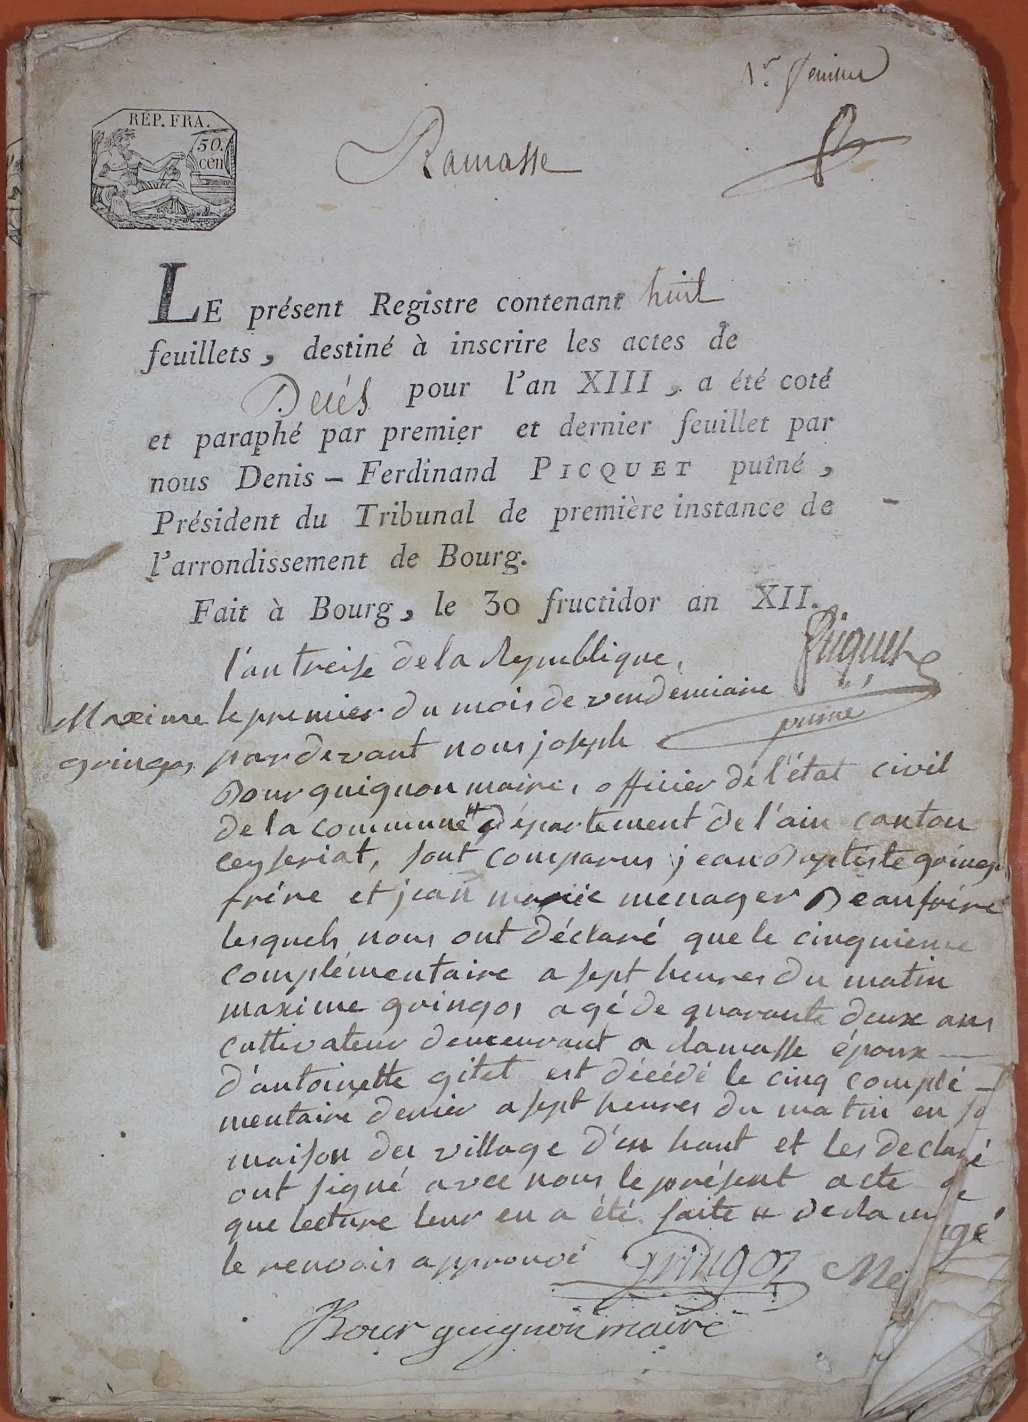 1er feuillet
RÉP. FRA.
50.
cen
Ramasse
LE présent Registre contenant huit
feuillets, destiné à inscrire les actes de
Decés pour l'an XIII, a été coté
et paraphé par premier et dernier feuillet par
nous Denis-Ferdinand PICQUET puîné,
Président du Tribunal de première instance de
l'arrondissement de Bourg.
Fait à Bourg, le 30 fructidor an XII.
Picquet
puiné
Maxime
gringoz
l'an treise de la Republique,
le premier du mois de vendémiaire
par devant nous joseph
Bourguignon maire, officier de l'état civil
de la commune # département de l'ain canton
ceyseriat, sont comparus jean Baptiste gringoz
frère et jean marie menager Beaufrère
lesquels nous ont déclaré que le cinquieme
complémentaire a sept heures du matin
maxime gringoz agé de quarante deux ans
cultivateur demeurant a Ramasse époux
d'antoinette gitet est décédé le cinq complé-
mentaire denier a sept heures du matin en sa
maison du village d'en haut et les declaré
ont signé avec nous le présent acte
que lecture leur en a été faite # de Ram
le renvois approuvé
gringoz
Me
Bourguignon maire